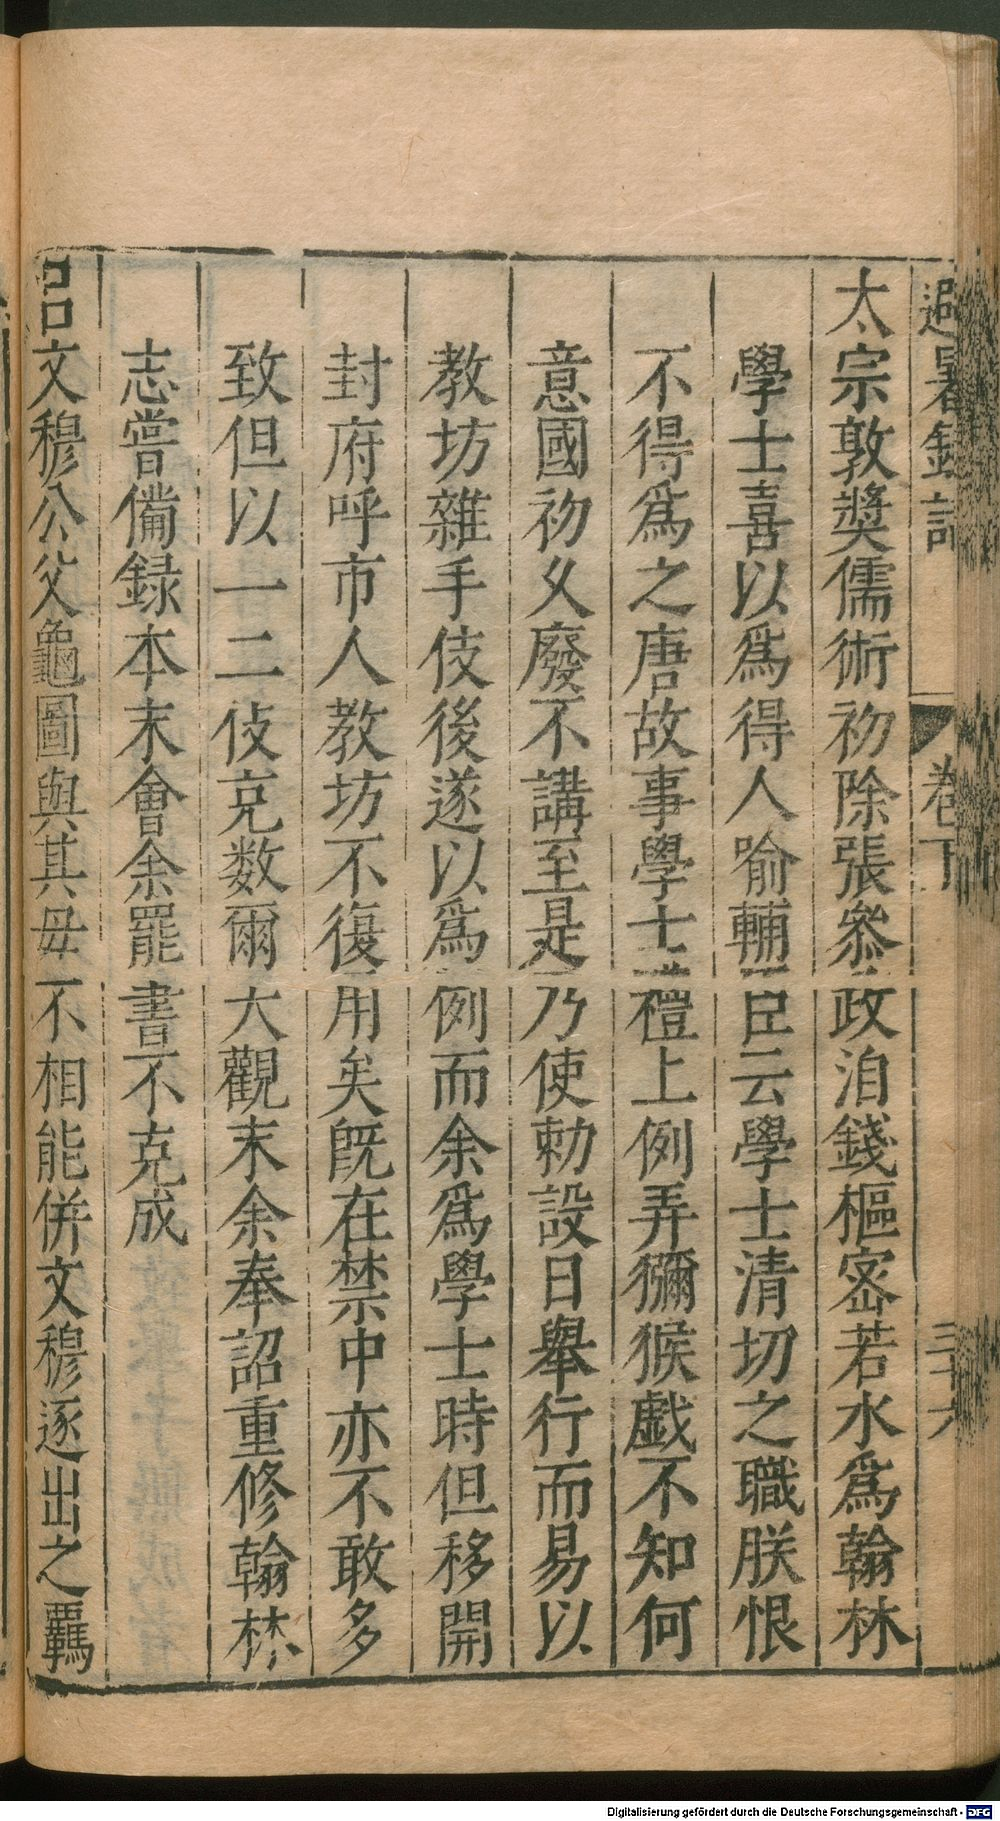 避暑録話 卷下 三十六
太宗敦奬儒術初除張叅政洎錢樞宻若水爲翰林
學士喜以爲得人喻輔臣云學士清切之職朕恨
不得爲之唐故事學士禮上例弄獼猴戱不知何
意國初乆廢不講至是乃使勅設日舉行而易以
教坊雜手伎後遂以爲例而余爲學士時但移開
封府呼市人教坊不復用矣旣在禁中亦不敢多
致但以一二伎克数爾大觀末余奉詔重修翰林
志嘗備録本末會余罷書不克成
吕文穆公父龜圖與其毋不相能併文穆逐出之羈
Digitalisierung gefördert durch die Deutsche Forschungsgemeinschaft - DFG